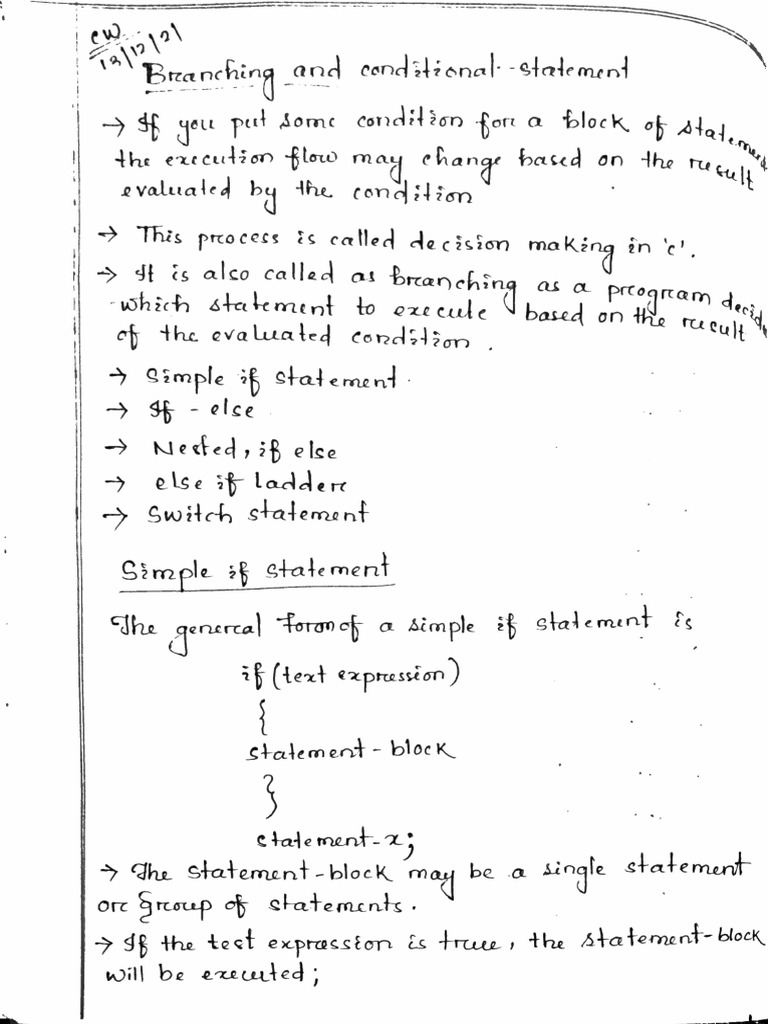 CW
13/12/21
Branching and conditional-statement
→ If you put some condition for a block of statement
the execution flow may change based on the result
evaluated by the condition
→ This process is called decision making in 'c'.
→ It is also called as branching as a program decide
which statement to execute based on the result
of the evaluated condition.
→ Simple if statement.
→ If - else
→ Nested, if else
→ else if ladder
→ Switch statement
Simple if statement
The general form of a simple if statement is
if (text expression)
{
statement-block
}
statement-x;
→ The statement-block may be a single statement
or group of statements.
→ If the test expression is true, the statement-block
will be executed;